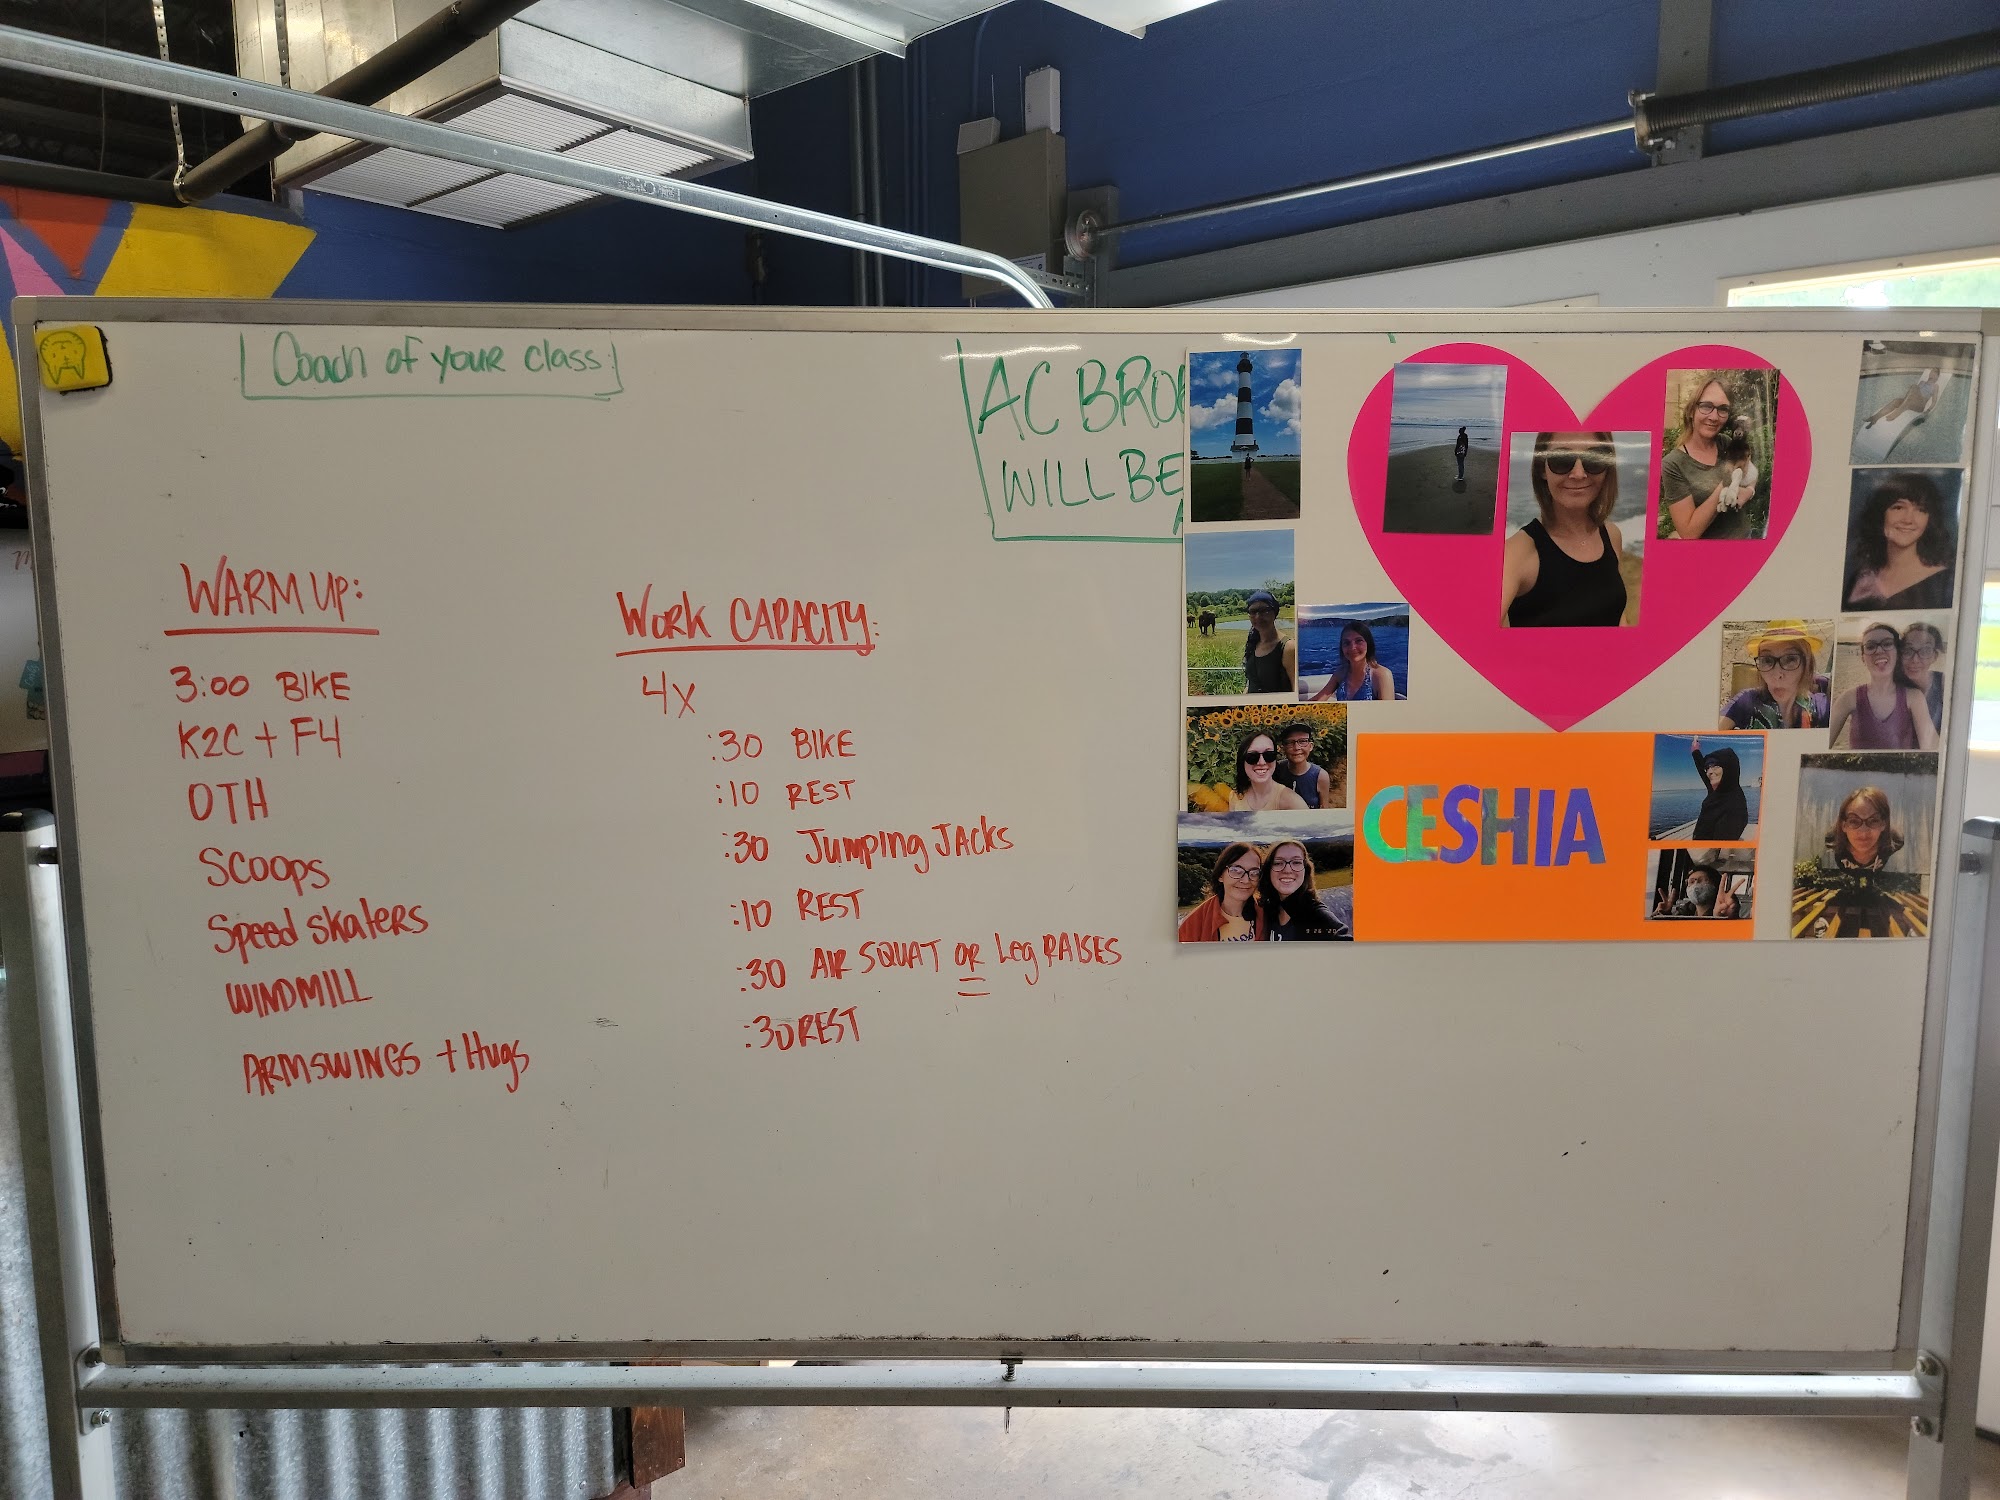 Coach of your class
AC BRO
WILL BE
WARM UP:
3:00 BIKE
K2C + F4
OTH
SCOOPS
Speed skaters
WINDMILL
ARMSWINGS + Hugs
WORK CAPACITY:
4X
:30 BIKE
:10 REST
:30 Jumping JACKS
:10 REST
:30 AIR SQUAT OR Leg RAISES
:30 REST
CESHIA
9 26 '20